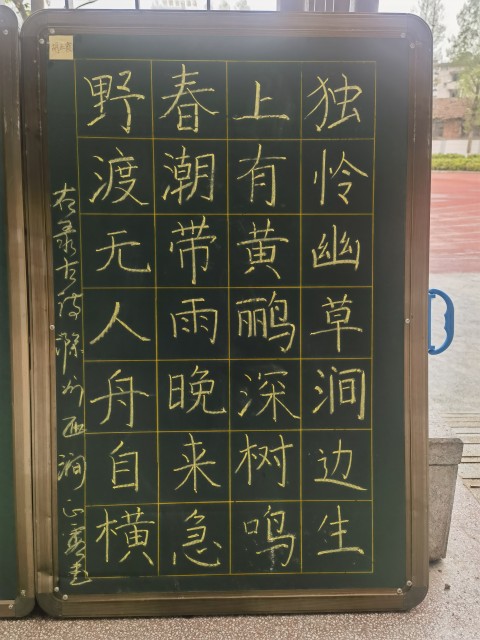 独怜幽草涧边生
上有黄鹂深树鸣
春潮带雨晚来急
野渡无人舟自横
右录古诗滁州西涧